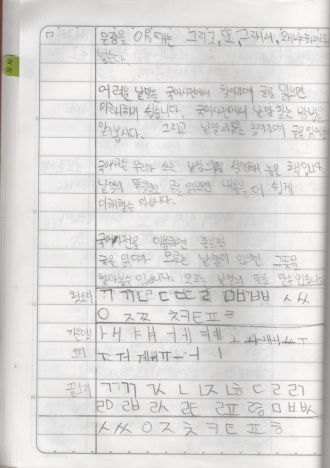 문장을 이을 때는 그리고, 또, 그래서, 왜냐하면
넣는다.
어려운 낱말을 국어사전에서 찾아가며 글을 읽으면
이해하기 쉽습니다. 국어사전에서 낱말 찾는 방법
알아봅시다. 그리고 낱말의 뜻을 찾아가며 글을 읽
국어사전은 우리가 쓰는 낱말의 뜻을 설명해 놓은 책입니다.
낱말의 뜻을 글을 읽으면 내용을 더 쉽게
이해할 수 있습니다.
국어사전을 이용하면 좋은점
글을 읽다가 모르는 낱말이 있으면 그 뜻을
찾아볼 수 있습니다. 모르는 낱말의 뜻을 알 수 있습니다
첫소리 ㄱ ㄲ ㄴ ㄷ ㄸ ㄹ ㅁ ㅂ ㅃ ㅅ ㅆ
ㅇ ㅈ ㅉ ㅊ ㅋ ㅌ ㅍ ㅎ
가운데
끝소리 ㄱ ㄲ ㄳ ㄴ ㄵ ㄶ ㄷ ㄹ ㄺ
ㄻ ㄼ ㄽ ㄾ ㄿ ㅀ ㅁ ㅂ ㅄ
ㅅ ㅆ ㅇ ㅈ ㅊ ㅋ ㅌ ㅍ ㅎ